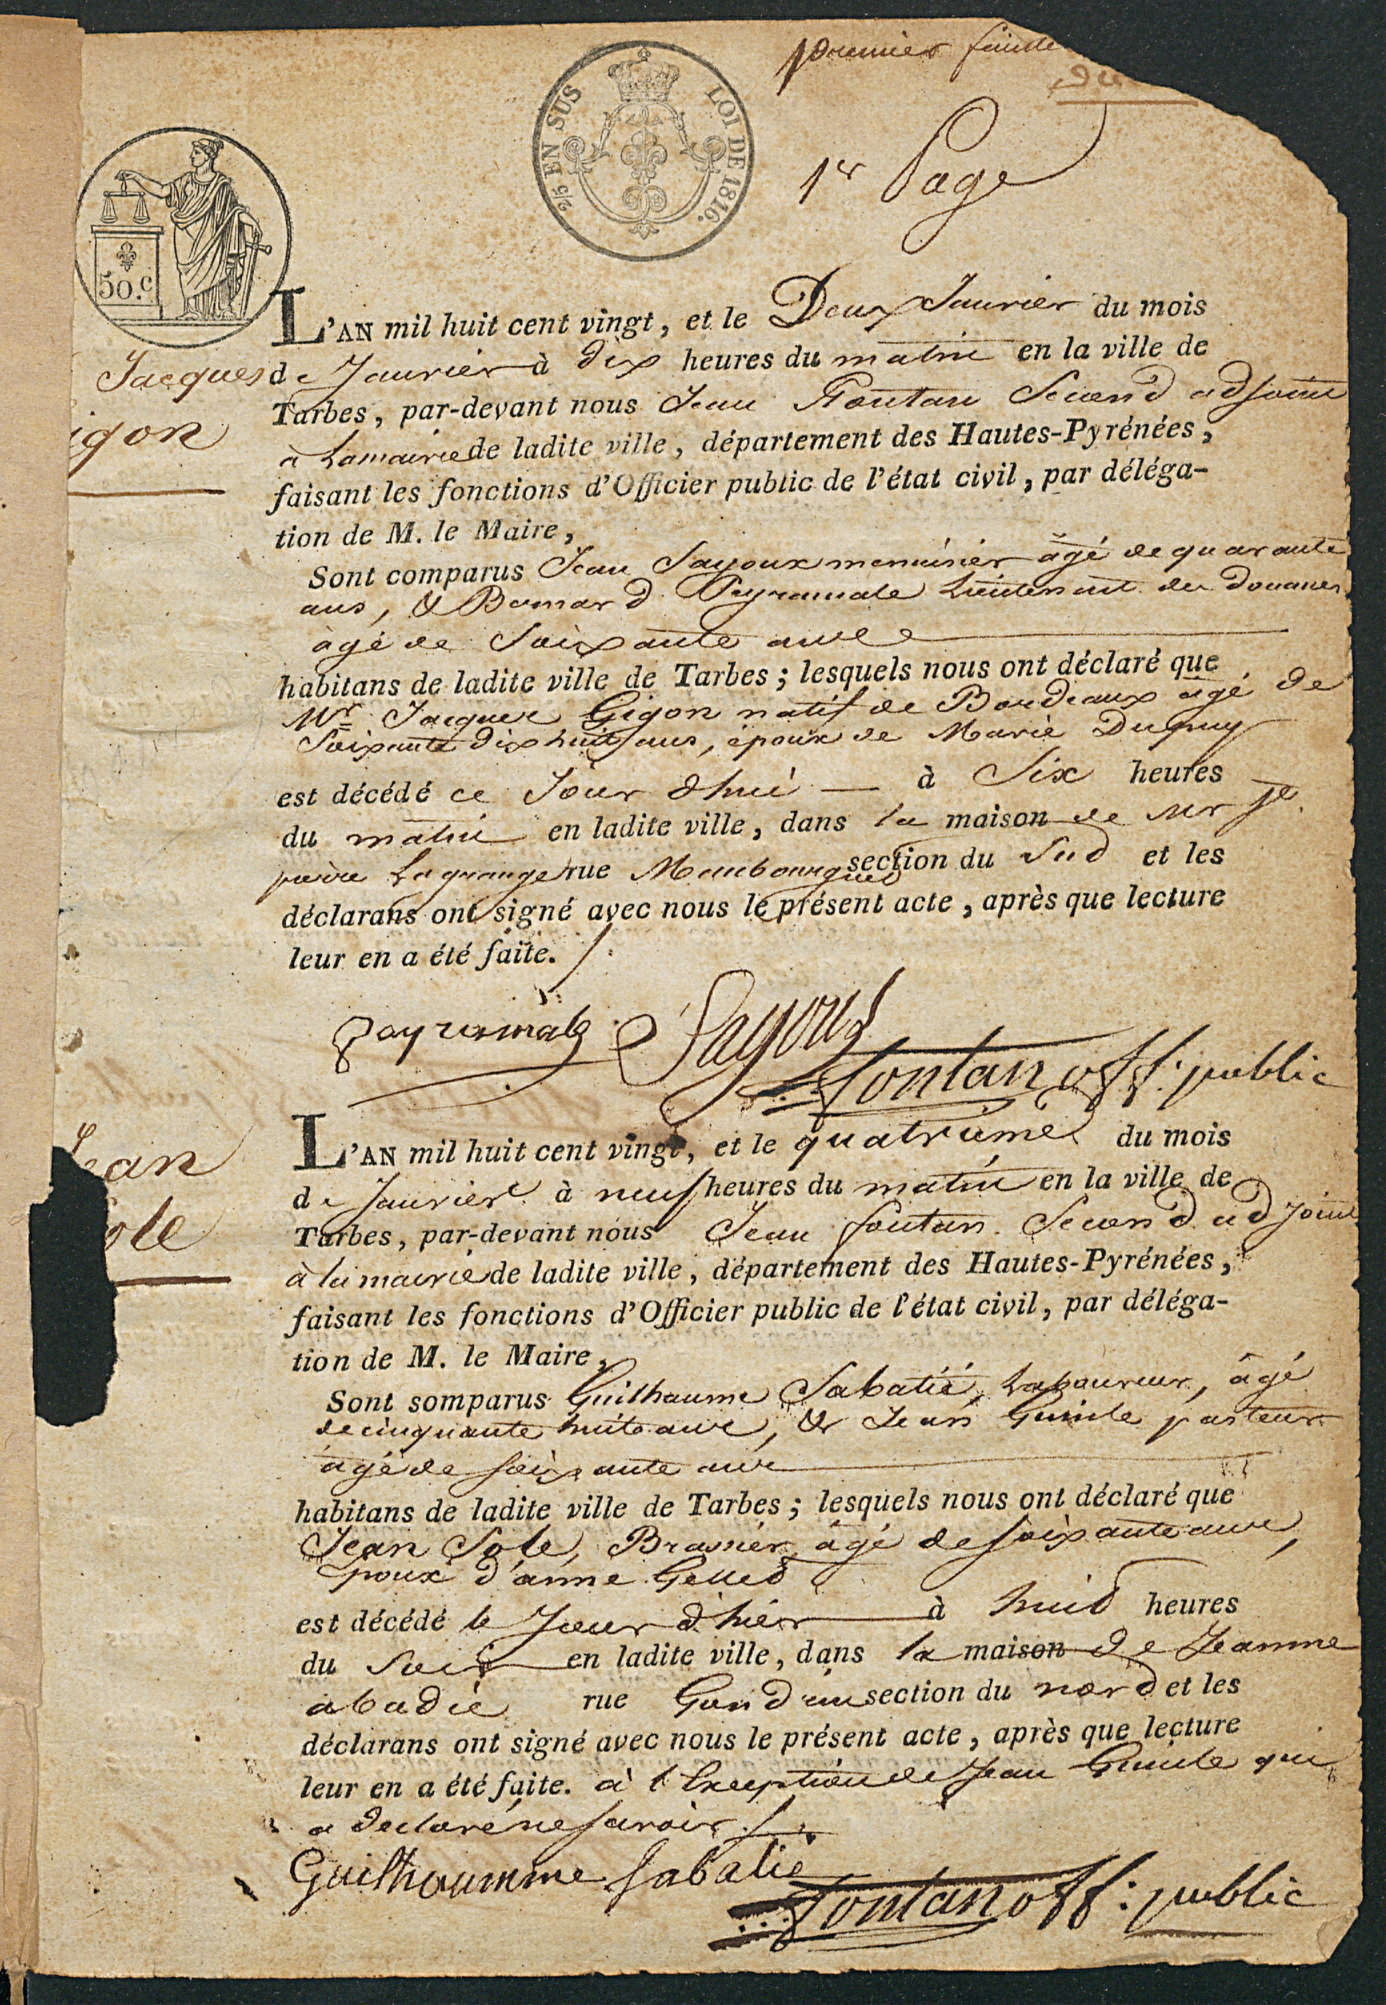 premier feuille
1r Page
2/5 EN SUS LOI DE 1816.
50.c
Jacques
igon
L'AN mil huit cent vingt, et le Deux Janvier du mois
de Janvier à dix heures du matin en la ville de
Tarbes, par-devant nous Jean Fontan Second adjoint
à la mairie de ladite ville, département des Hautes-Pyrénées,
faisant les fonctions d'Officier public de l'état civil, par déléga-
tion de M. le Maire,
Sont comparus Jean Sayoux menuisier âgé de quarante
ans, & Bernard Peyramale Lieutenant des Douanes
âgé de Soixante ans
habitans de ladite ville de Tarbes; lesquels nous ont déclaré que
Mr Jacques Gigon natif de Bordeaux âgé de
Soixante dix huit ans, époux de Marie Dupuy
est décédé ce Jour dhui à Six heures
du matin en ladite ville, dans la maison de Mr Jn
pierre Lagrange rue Maubourguet section du Sud et les
déclarans ont signé avec nous le présent acte, après que lecture
leur en a été faite.
Payremale Sayous
Fontan off: public
Jean
Sole
L'AN mil huit cent vingt, et le quatrieme du mois
de Janvier à neuf heures du matin en la ville de
Tarbes, par-devant nous Jean fontan Second adjoint
à la mairie de ladite ville, département des Hautes-Pyrénées,
faisant les fonctions d'Officier public de l'état civil, par déléga-
tion de M. le Maire,
Sont somparus Guilhaume Sabatié, Laboureur, âgé
de cinquante huit ans, & Jean Guinle pasteur
âgé de soixante ans
habitans de ladite ville de Tarbes; lesquels nous ont déclaré que
Jean Sole, Brassier, âgé de soixante ans,
époux d'anne
est décédé le Jour d'hier à huit heures
du Soir en ladite ville, dans la maison de Jeanne
abadie rue section du nord et les
déclarans ont signé avec nous le présent acte, après que lecture
leur en a été faite. à l'Exception de Jean Guinle qui
a declaré ne savoir
Guilhaumme sabatié
Fontan off: public